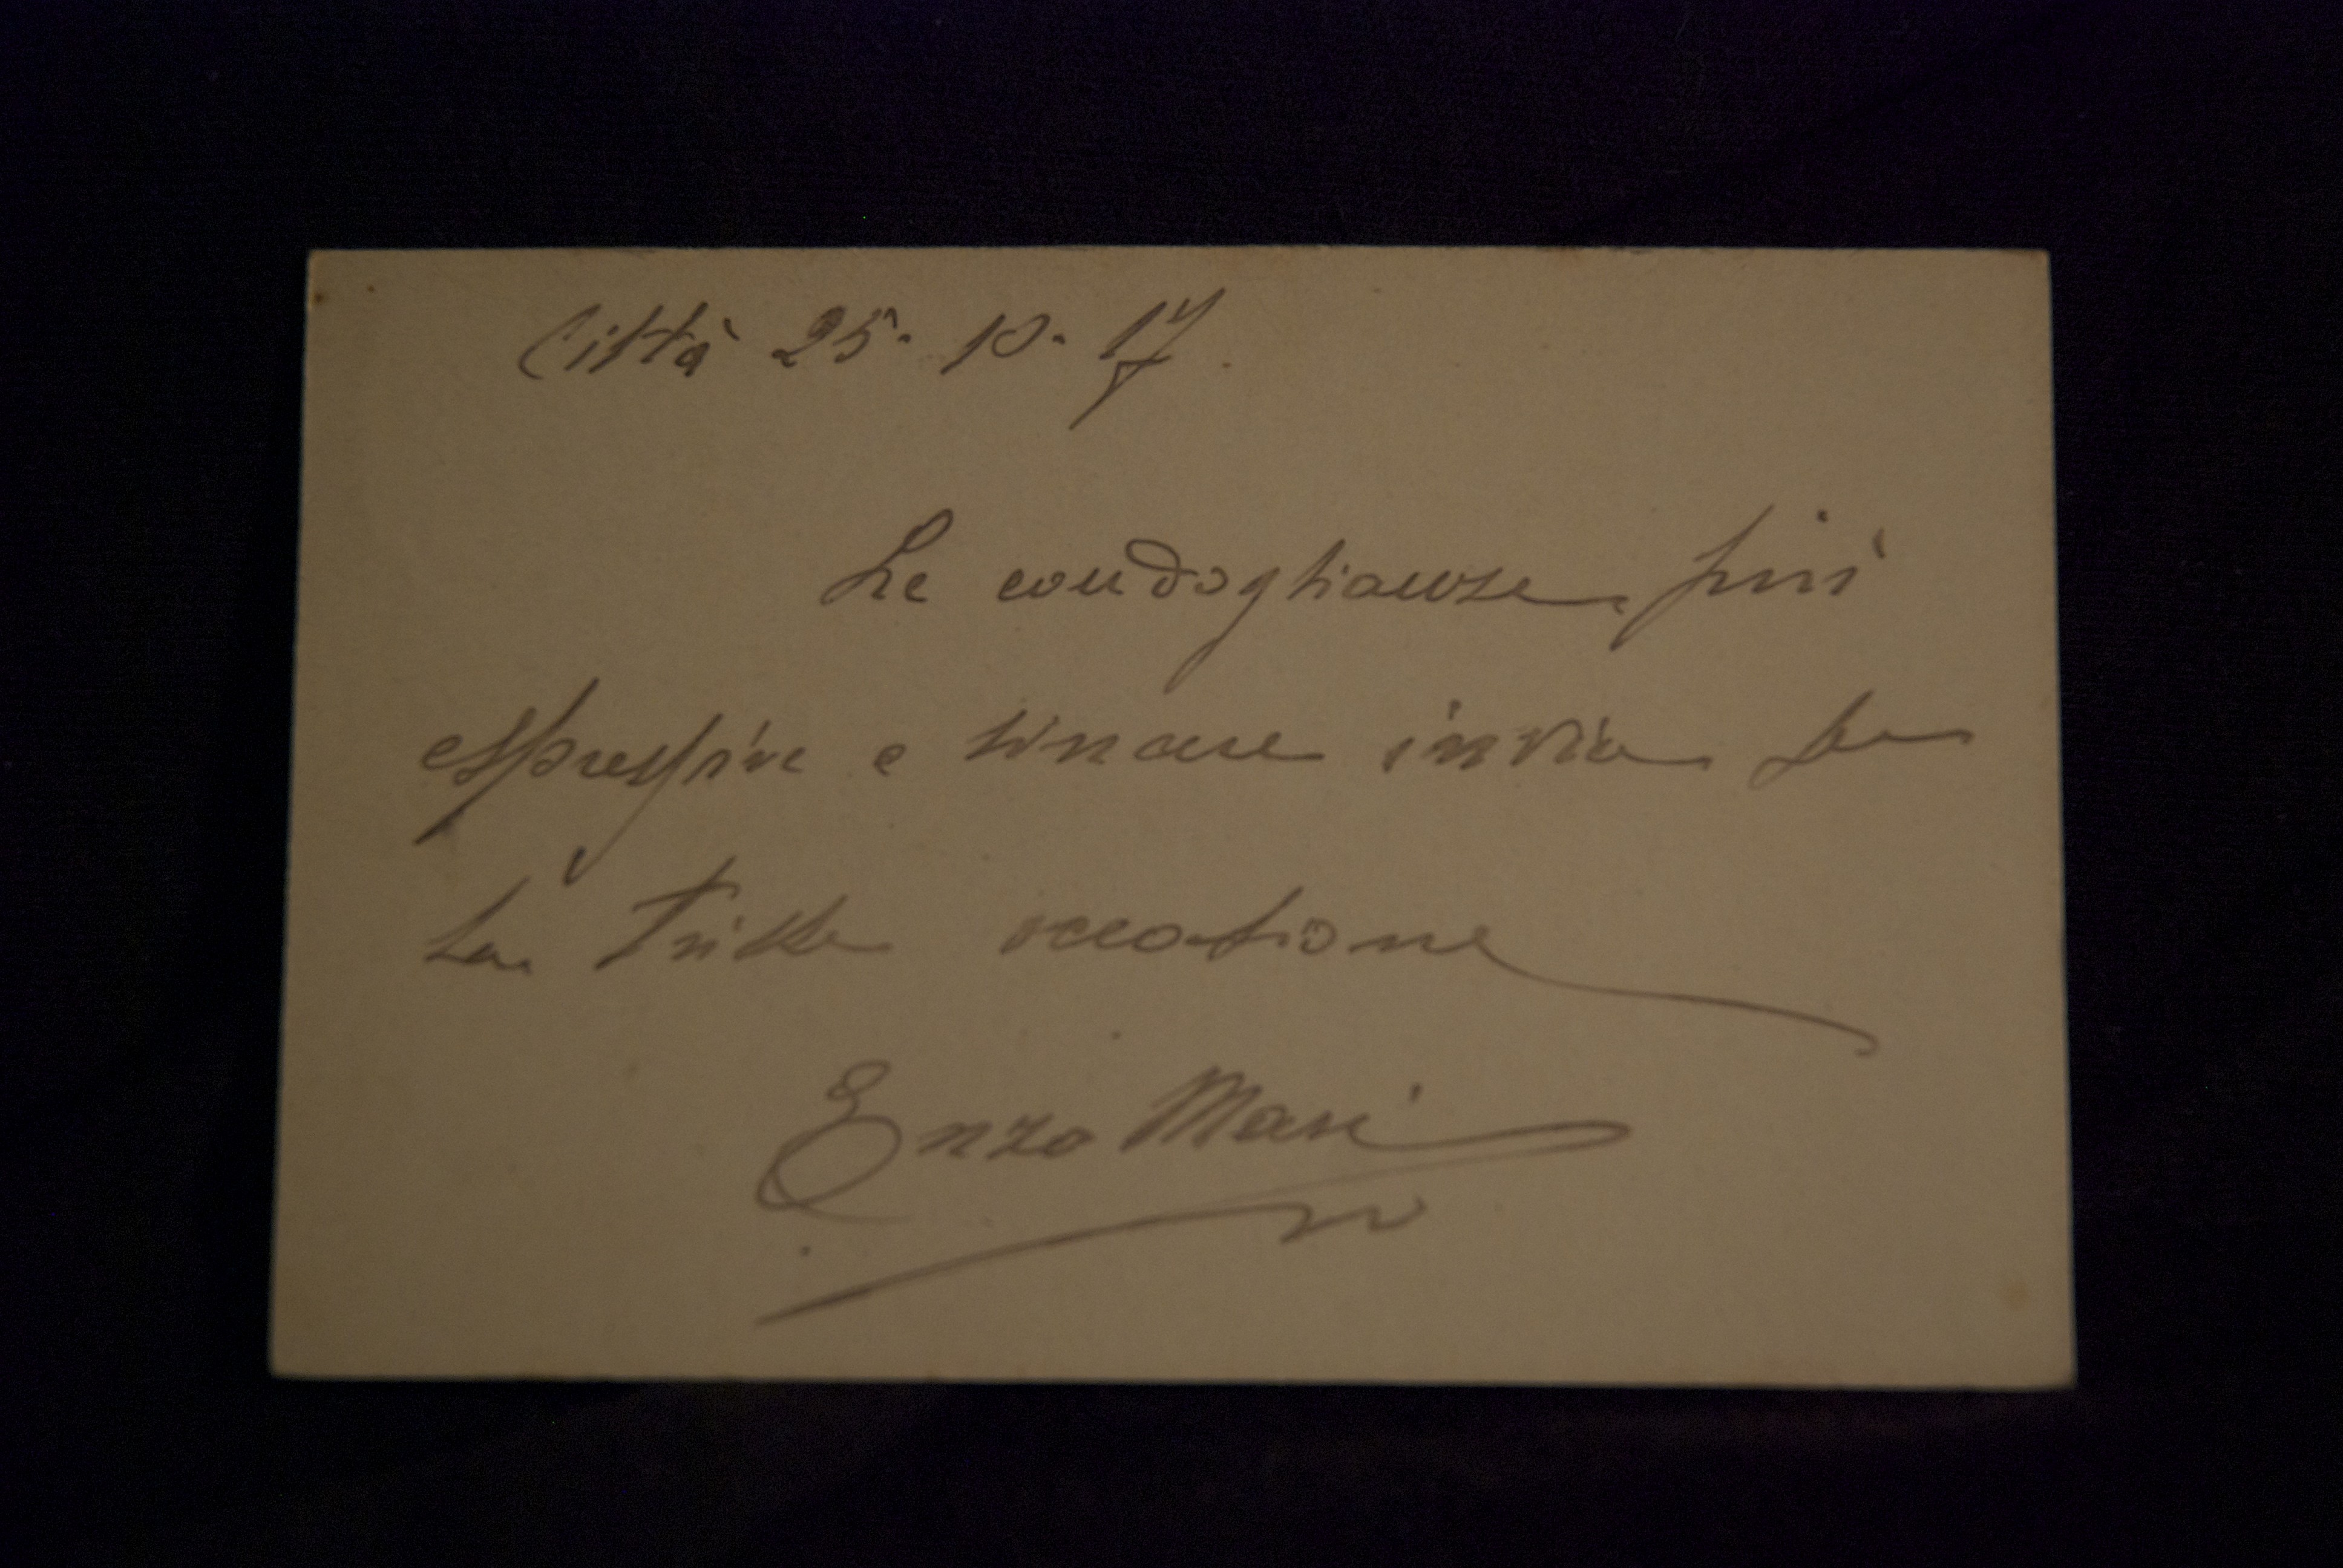 Città 25. 10. 17.
Le condoglianze più
espressive e sincere invia per
la triste occasione
Enzo Masi